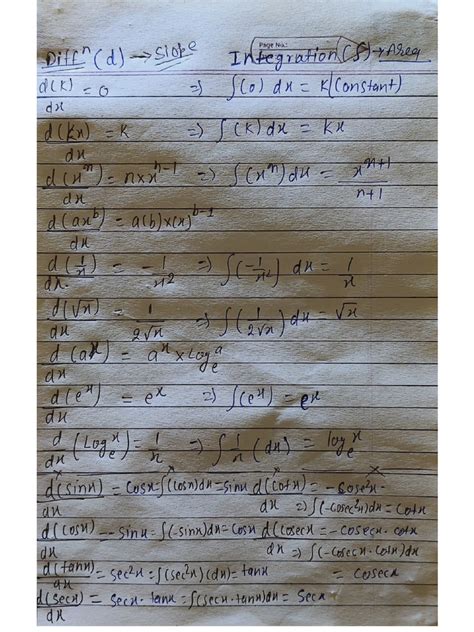 Page No.:
Diffⁿ (d) → Slope Integration (∫) → Area
d(K)/dx = 0 ⇒ ∫(0) dx = K (Constant)
d(Kx)/dx = K ⇒ ∫(K) dx = Kx
d(xⁿ)/dx = n×xⁿ⁻¹ ⇒ ∫(xⁿ) dx = xⁿ⁺¹/n+1
d(axᵇ)/dx = a(b)×(x)ᵇ⁻¹
d(1/x)/dx. = -1/x² ⇒ ∫(-1/x²) dx = 1/x
d(√x)/dx = 1/2√x ⇒ ∫(1/2√x) dx = √x
d(aˣ)/dx = aˣ × Logₑᵃ
d(eˣ)/dx = eˣ ⇒ ∫(eˣ) = eˣ
d/dx (Logₑˣ) = 1/x ⇒ ∫ 1/x (dx) = logₑˣ
d(sinx)/dx = Cosx = ∫(Cosx)dx = sinx d(Cotx)/dx = -Cosec²x
⇒ ∫(-Cosec²x)dx = Cotx
d(Cosx)/dx = -Sinx = ∫(-sinx)dx = Cosx d(Cosecx/dx = -Cosecx · cotx
⇒ ∫(-Cosecx·Cotx)dx
d(tanx)/dx = Sec²x = ∫(sec²x)(dx) = tanx = Cosecx
d(secx)/dx = Secx · tanx = ∫(secx·tanx)dx = Secx